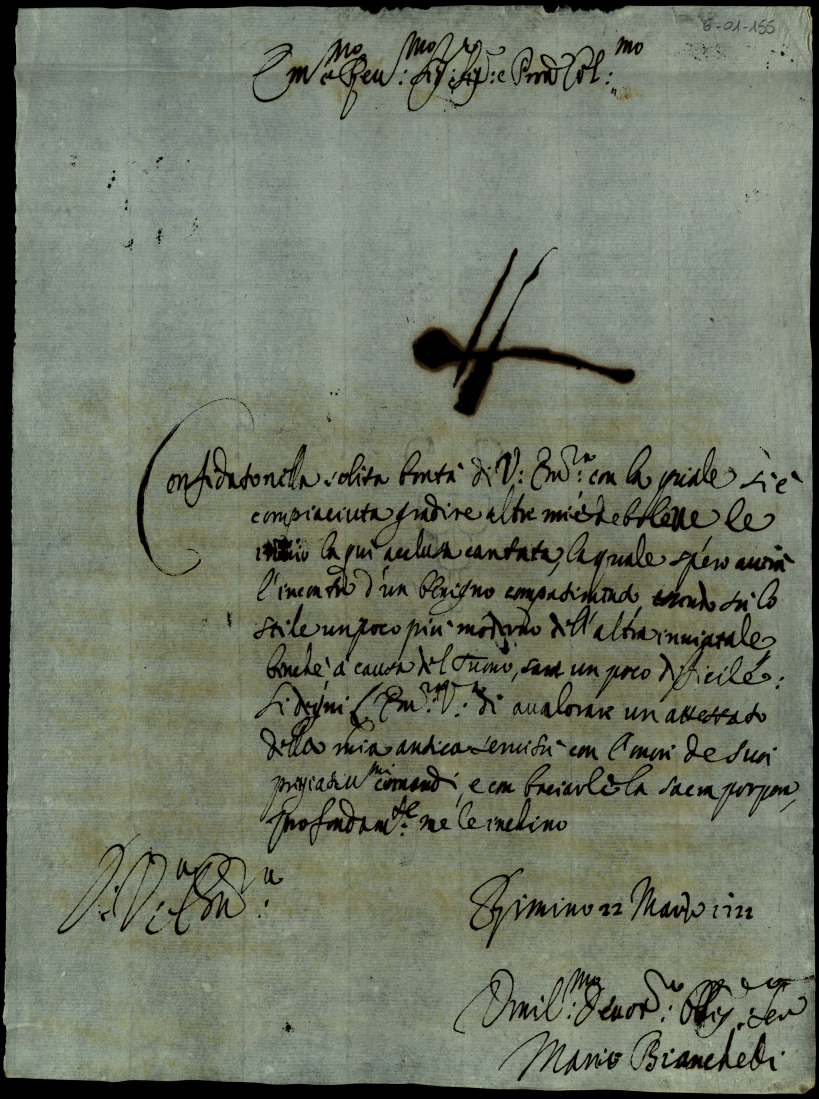 6-01-155
Em.mo e Reu.mo Sig.r Sig.r e Pron Col.mo
Confidato nella solita bontà di V: Em.za: con la quale si è
compiaciuta gradire altre mie debolezze le
inuio la qui acclusa cantata, la quale spero aurà
l'incontro d'un benigno compatimento essendo su lo
stile un poco più moderno dell'altra inuiatale
benche à causa del Tuono, sarà un poco dificile:
Si degni l'Em.za V.a di aualorare un attestato
della mia antica seruitù con l'onore de suoi
pregiatiss.mi comandi, e con baciarle la sacra porpora,
profondam.te: me le inchino
Di V.a Em.za:
Rimino 22 Marzo 1722
Vmil.mo: Deuot.mo: Oblig.: Seru
Mario Bianchedi